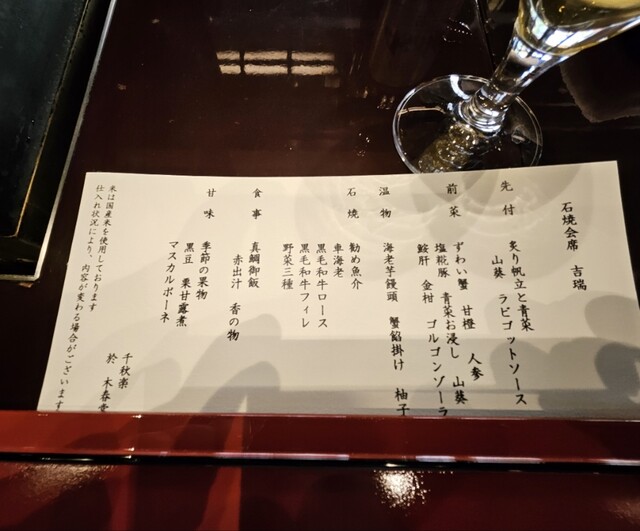 石焼会席 吉瑞
先付
炙り帆立と青菜
山葵 ラビゴットソース
前菜
ずわい蟹 甘橙 人参
塩糀豚 青菜お浸し 山葵
鮟肝 金柑 ゴルゴンゾーラ
温物
海老芋饅頭 蟹餡掛け 柚子
石焼
勧め魚介
車海老
黒毛和牛ロース
黒毛和牛フィレ
野菜三種
食事
真鯛御飯
赤出汁 香の物
甘味
季節の果物
黒豆 栗甘露煮
マスカルポーネ
米は国産米を使用しております
仕入れ状況により、内容が変わる場合がございます
千秋楽
於 木春堂